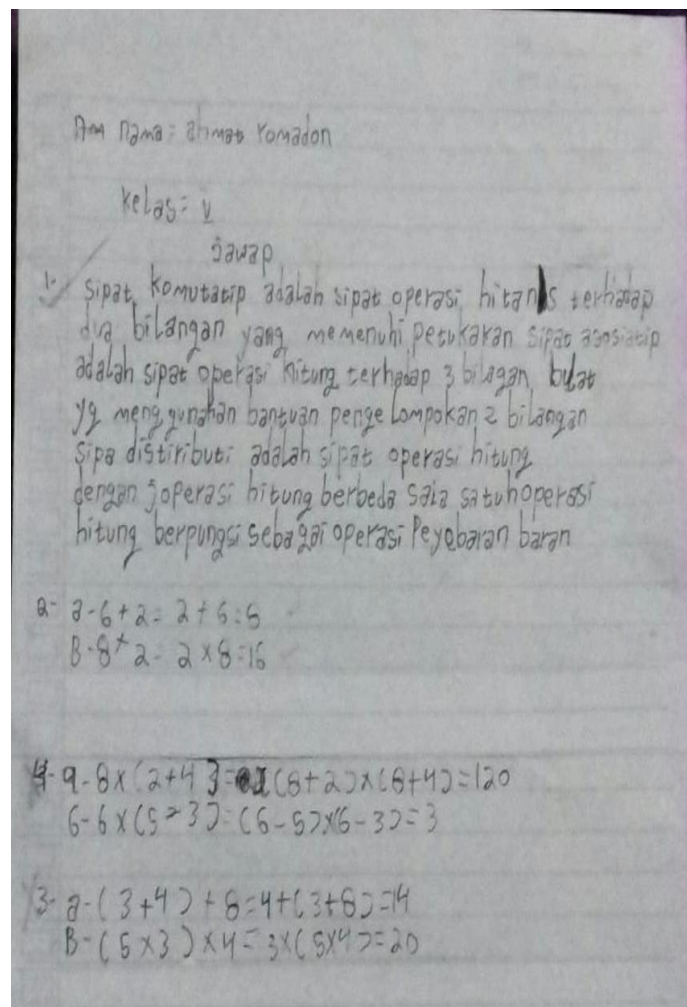 nama = ahmat romadon
kelas = V
Jawap
1. sipat komutatip adalah sipat operasi hitang terhadap
dua bilangan yang memenuhi petukaran sipat asosiatip
adalah sipat operasi hitung terhadap 3 bilagan bulat
yg menggunahan bantuan pengelompokan 2 bilangan
sipa distiributi adalah sipat operasi hitung
dengan operasi hitung berbeda sala satuh operasi
hitung berpungsi sebagai operasi Peyebaran baran
2- a-6+2= 2+6=8
B-8×2= 2×8=16
4- a-8×(2+4)= (8+2)×(8+4)=120
6-6×(5-3)=(6-5)×(6-3)=3
3- a-(3+4)+8=4+(3+8)=14
B-(5×3)×4=3×(5×4)=20